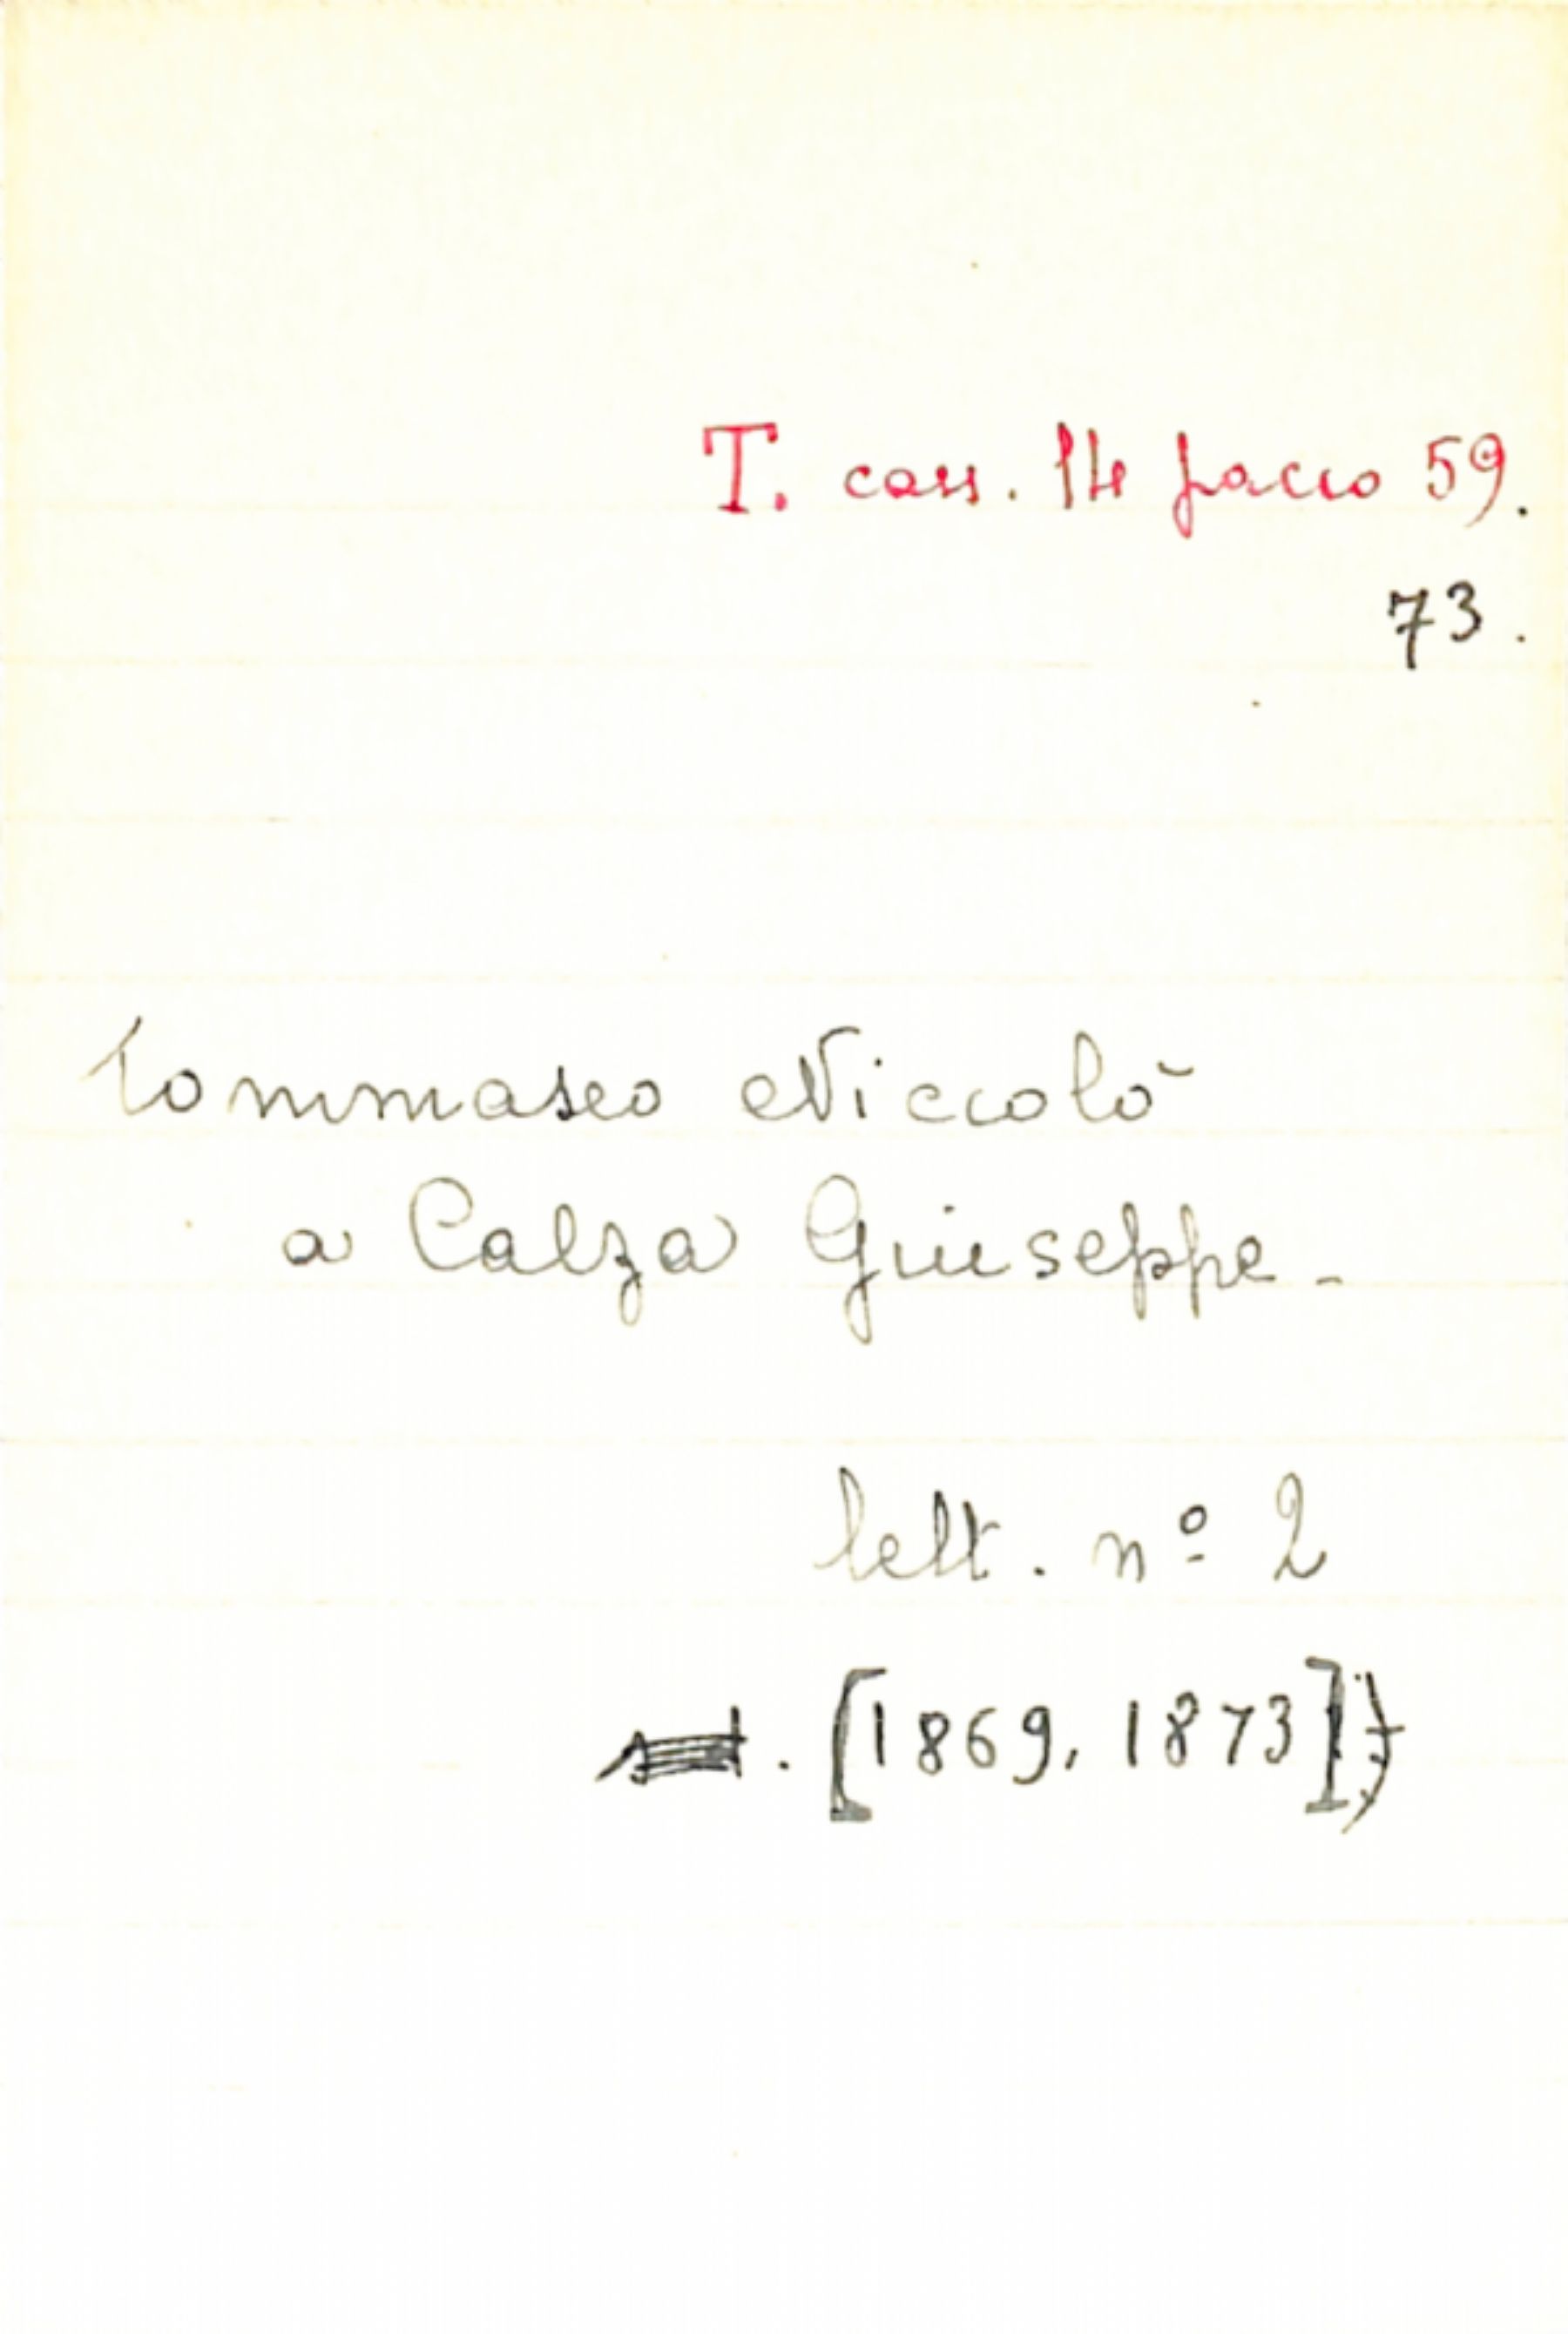 T. cass. 14 pacco 59.
73.
Tommaseo Niccolò
a Calza Giuseppe -
lett. nº 2
. [1869, 1873])